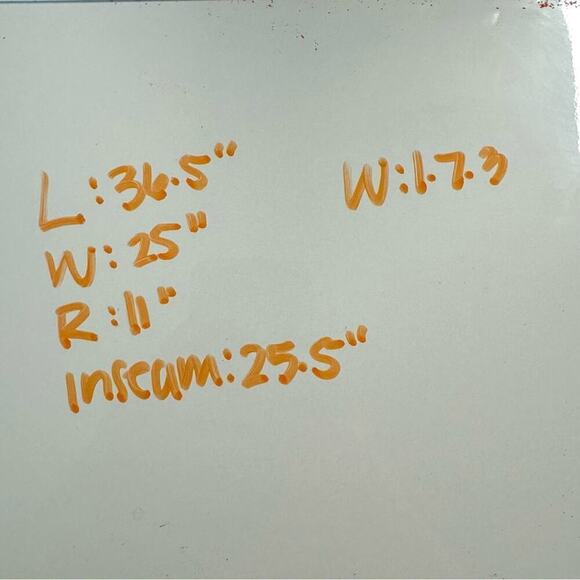 L: 36.5"
W: 25"
R: 11"
inseam: 25.5"
W: 1.7.3